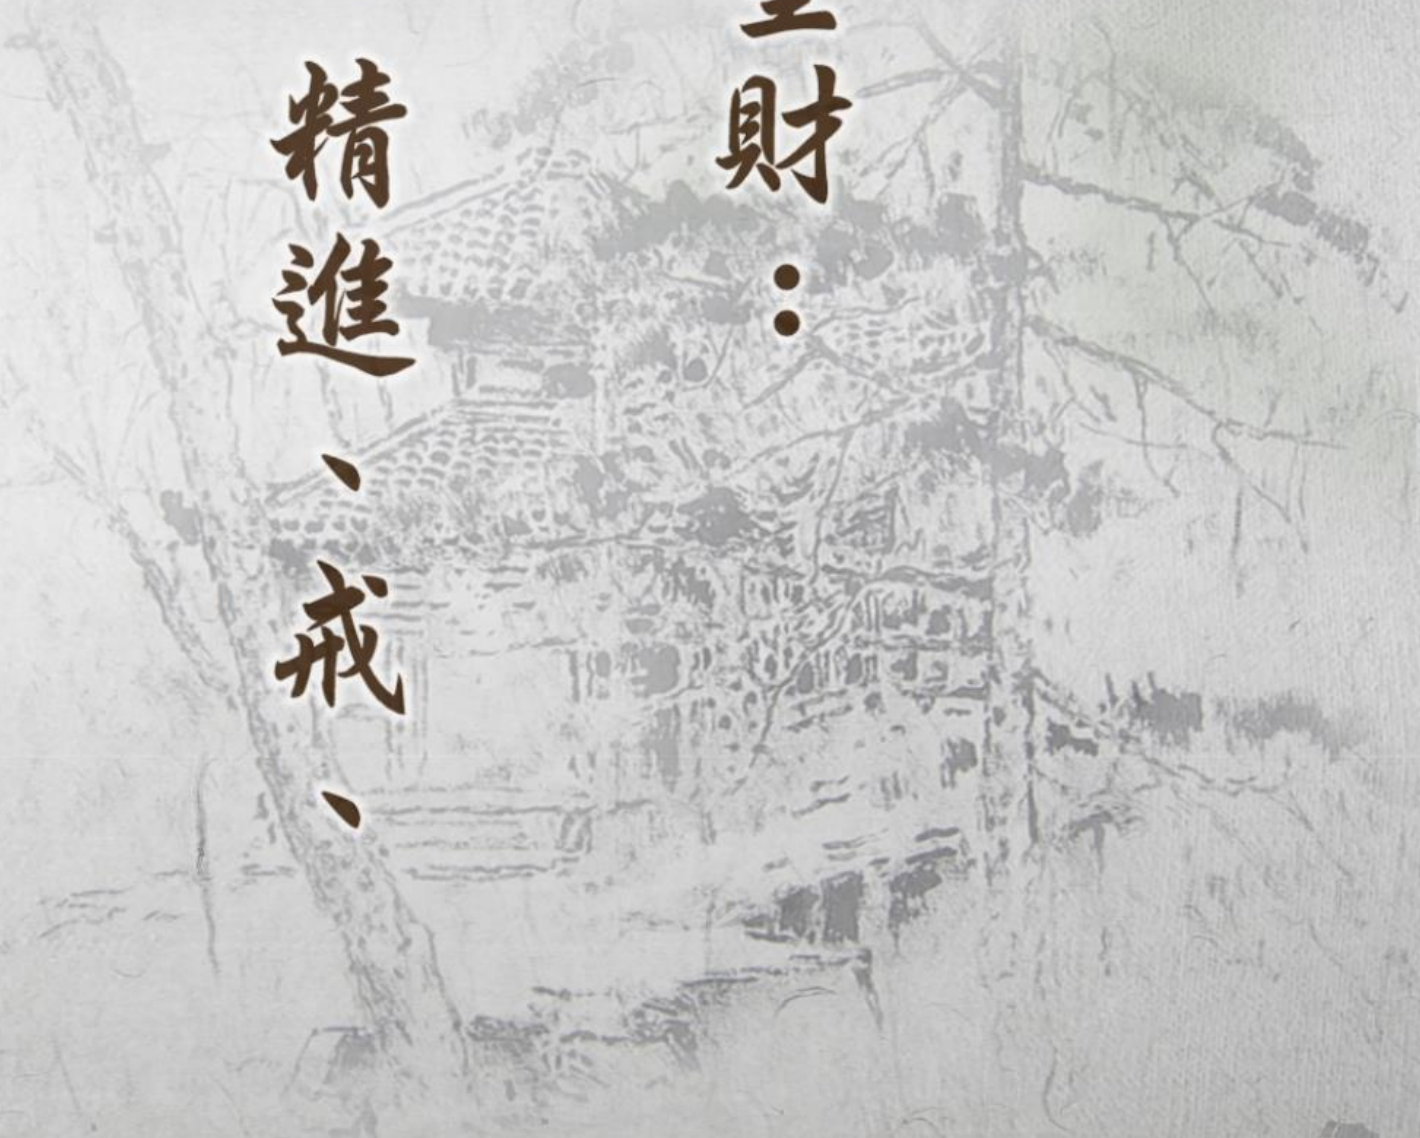 財：
精進、戒、